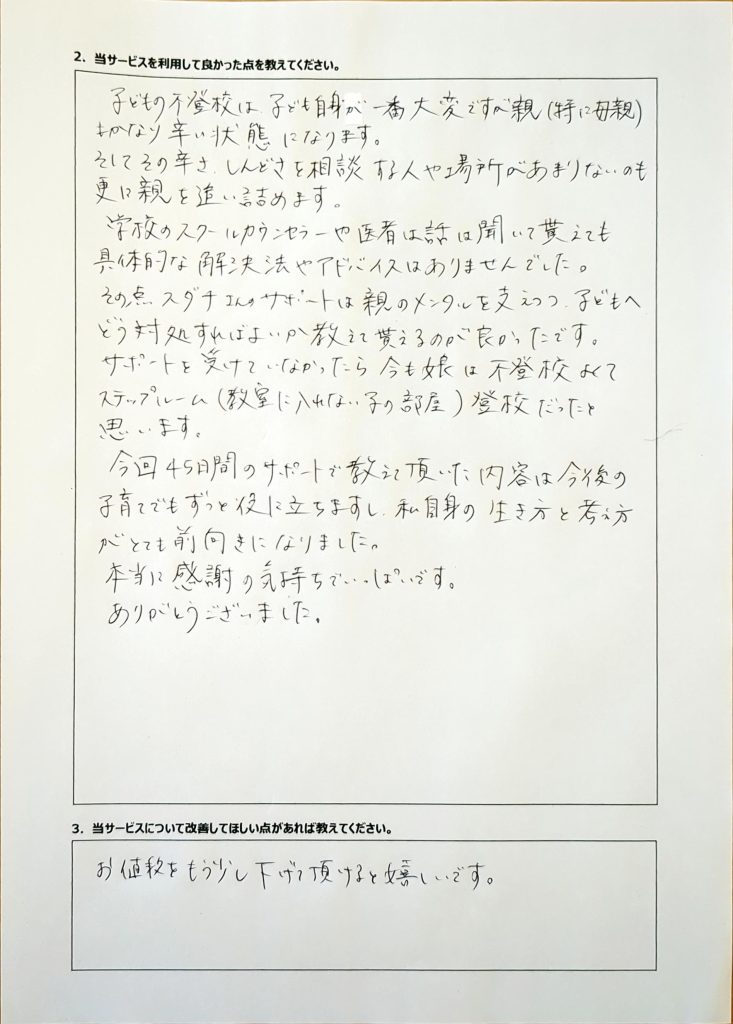 2. 当サービスを利用して良かった点を教えてください。
子どもの不登校は、子ども自身が一番大変ですが親(特に母親)
もかなり辛い状態になります。
そしてその辛さ、しんどさを相談する人や場所があまりないのも
更に親を追い詰めます。
学校のスクールカウンセラーや医者は話は聞いて貰えても
具体的な解決法やアドバイスはありませんでした。
その点スダチさんのサポートは親のメンタルを支えつつ、子どもへ
どう対処すればよいか教えて貰えるのが良かったです。
サポートを受けていなかったら今も娘は不登校よくて
ステップルーム(教室に入れない子の部屋)登校だったと
思います。
今回45日間のサポートで教えて頂いた内容は今後の
子育てでもずっと役に立ちますし、私自身の生き方と考え方
がとても前向きになりました。
本当に感謝の気持ちでいっぱいです。
ありがとうございました。
3. 当サービスについて改善してほしい点があれば教えてください。
お値段をもう少し下げて頂けると嬉しいです。